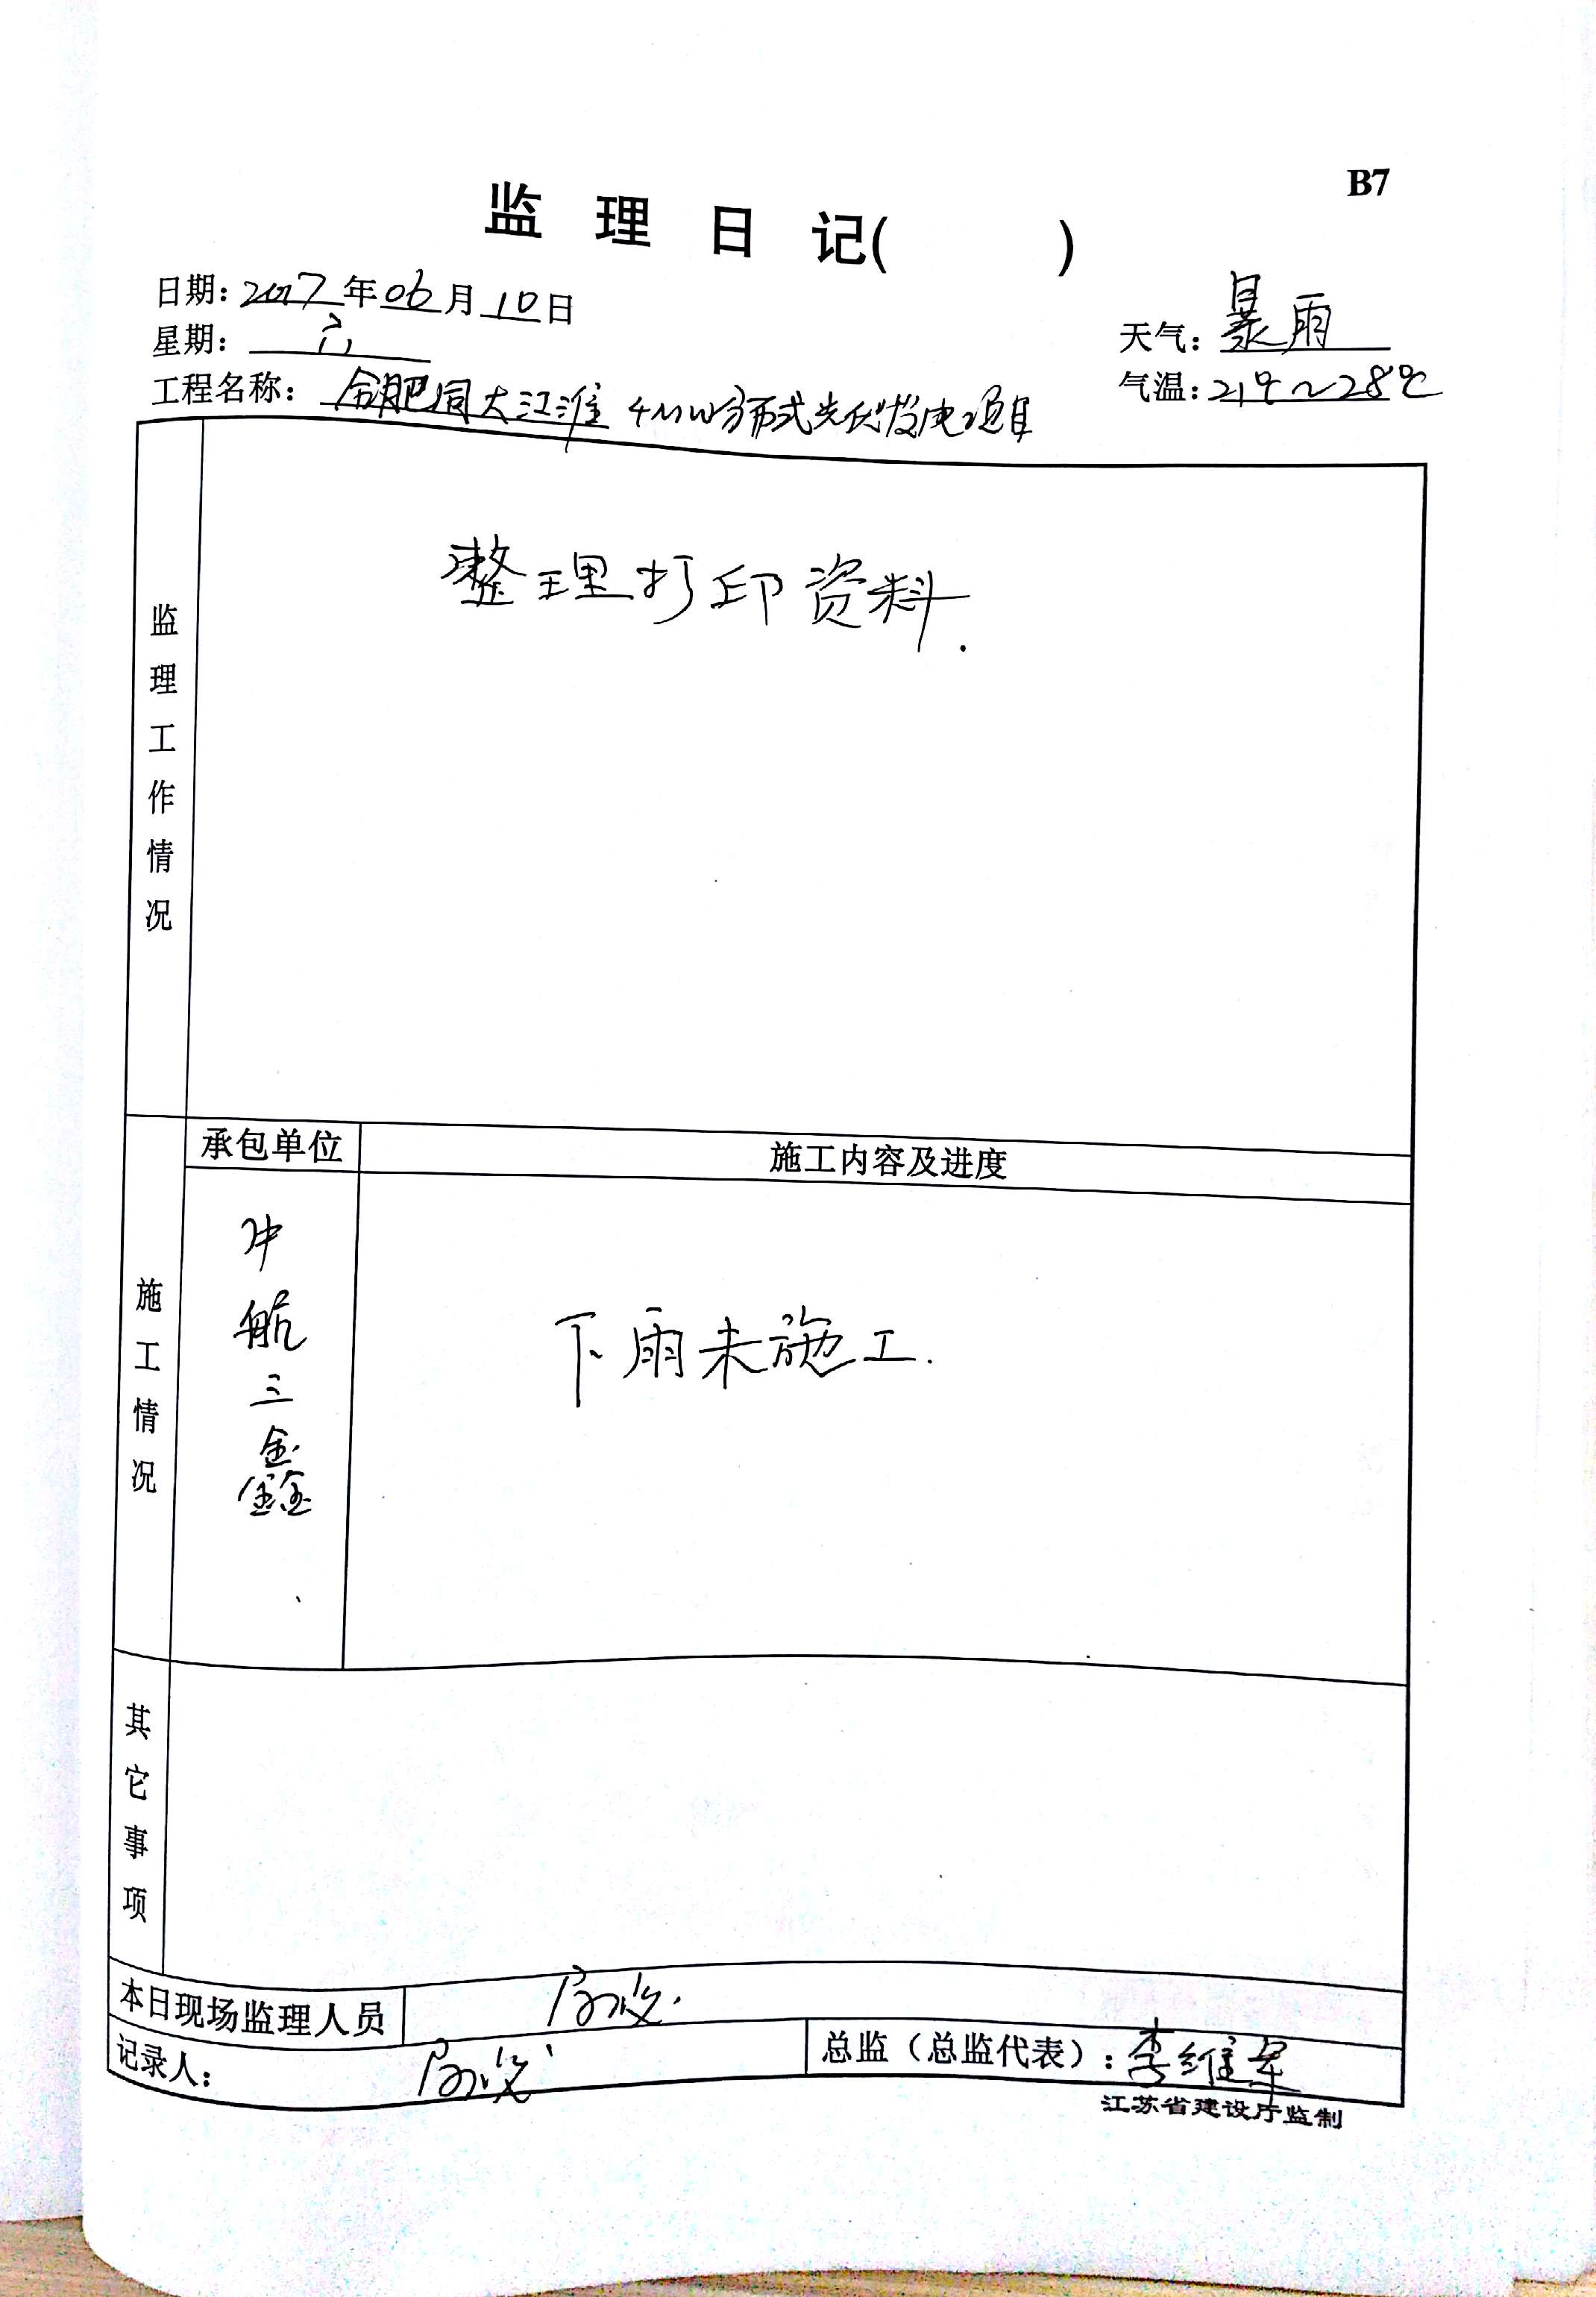 B7
监理日记( )
日期：2017年06月10日
星期：六
天气：暴雨
工程名称：合肥同大江淮4MW分布式光伏发电项目
气温：21℃～28℃
监理工作情况
整理打印资料.
承包单位
施工内容及进度
施工情况
中航三鑫
下雨未施工.
其它事项
本日现场监理人员
记录人：
总监（总监代表）：李维军
江苏省建设厅监制